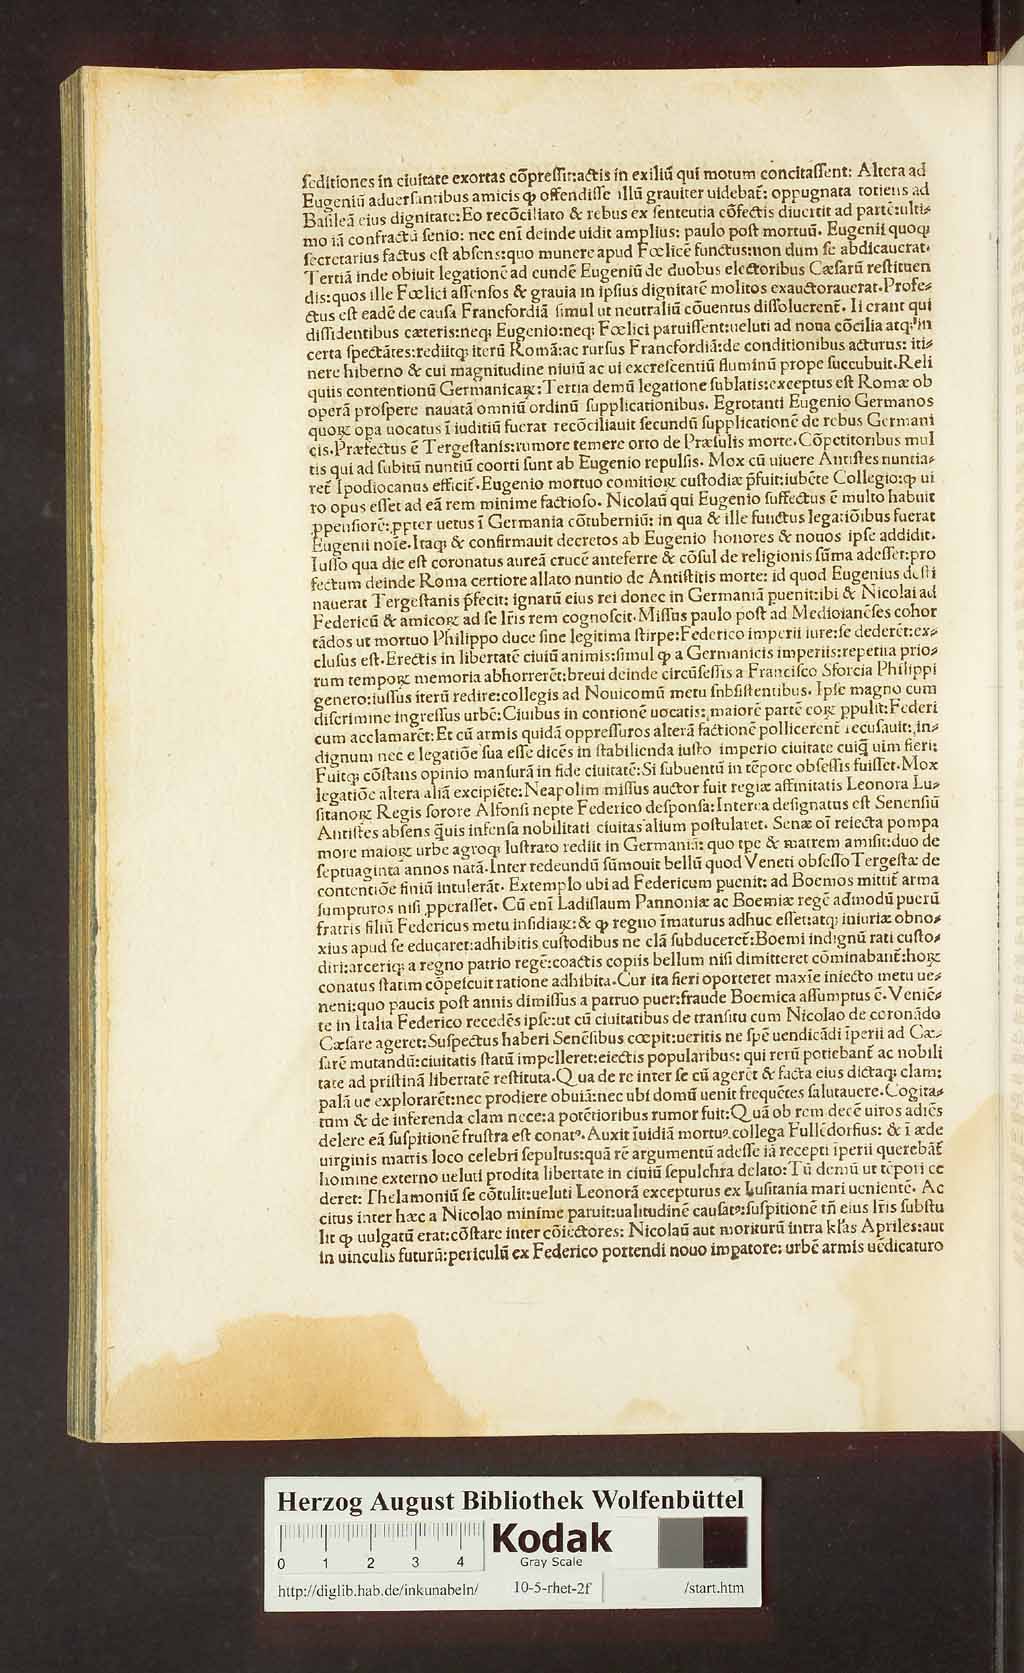 seditiones in ciuitate exortas cōpressit:actis in exiliū qui motum concitassent: Altera ad
Eugeniū aduersantibus amicis ꝙ offendisse illū grauiter uidebat̄: oppugnata totiens ad
Basileā eius dignitate:Eo recōciliato & rebus ex senteutia cōfectis diuertit ad partē:ulti⸗
mo iā confractū senio: nec eni deinde uidit amplius: paulo post mortuū. Eugenii quoqꝫ
secretarius factus est absens:quo munere apud Fœlicē functus:non dum se abdicauerat.
Tertiā inde obiuit legationē ad eundē Eugeniū de duobus electoribus Cæsarū restituen
dis:quos ille Fœlici assensos & grauia in ipsius dignitatē molitos exauctorauerat.Profe⸗
ctus est eadē de causa Francfordiā simul ut neutraliū cōuentus dissoluerent̄. Ii erant qui
dissidentibus cæteris:neqꝫ Eugenio:neqꝫ Fœlici paruissent:ueluti ad noua cōcilia atqꝫ in
certa spectātes:rediitqꝫ iterū Romā:ac rursus Francfordiā:de conditionibus acturus: iti⸗
nere hiberno & cui magnitudine niuiū ac ui excrescentiū fluminū prope succubuit.Reli
quiis contentionū Germanicaꝝ: Tertia demū legatione sublatis:exceptus est Romæ ob
operā prospere nauatā omniū ordinū supplicationibus. Egrotanti Eugenio Germanos
quoꝝ opa uocatus ī iuditiū fuerat recōciliauit secundū supplicationē de rebus Germani
cis.Præfectus ē Tergestanis:rumore temere orto de Præsulis morte.Cōpetitoribus mul
tis qui ad subitū nuntiū coorti sunt ab Eugenio repulsis. Mox cū uiuere Antistes nuntia⸗
ret̄ Ipodiocanus efficit̄.Eugenio mortuo comitioꝝ custodiæ p̄fuit:iubēte Collegio:ꝙ ui
ro opus esset ad eā rem minime factioso. Nicolaū qui Eugenio suffectus ē multo habuit
ꝓpensiorē:ꝓpter uetus ī Germania cōtuberniū: in qua & ille functus legatiōibus fuerat
Eugenii noīe.Itaqꝫ & confirmauit decretos ab Eugenio honores & nouos ipse addidit.
Iusso qua die est coronatus aureā crucē anteferre & cōsul de religionis sūma adesset:pro
fectum deinde Roma certiore allato nuntio de Antistitis morte: id quod Eugenius desti
nauerat Tergestanis p̄fecit: ignarū eius rei donec in Germaniā puenit:ibi & Nicolai ad
Federicū & amicoꝝ ad se lr̄is rem cognoscit.Missus paulo post ad Mediolanēses cohor
tādos ut mortuo Philippo duce sine legitima stirpe:Federico imperii iure:se dederēt:ex⸗
clusus est.Erectis in libertatē ciuiū animis:simul ꝙ a Germanicis imperiis:repetita prio⸗
rum tempoꝝ memoria abhorrerēt:breui deinde circūsessis a Francisco Sforcia Philippi
genero:iussus iterū redire:collegis ad Nouicomū metu subsistentibus. Ipse magno cum
discrimine ingressus urbē:Ciuibus in contionē uocatis: maiorē partē eoꝝ ꝑpulit:Federi
cum acclamarēt:Et cū armis quidā oppressuros alterā factionē pollicerent̄ recusauit:in⸗
dignum nec e legatiōe sua esse dicēs in stabilienda iusto imperio ciuitate cuiꝗ uim fieri:
Fuitqꝫ cōstans opinio mansurā in fide ciuitatē:Si subuentū in tēpore obsessis fuisset.Mox
legatiōe altera aliā excipiēte:Neapolim missus auctor fuit regiæ affinitatis Leonora Lu⸗
sitanoꝝ Regis sorore Alfonsi nepte Federico desponsa:Interea designatus est Senensiū
Antistes absens ꝗuis infensa nobilitati ciuitas alium postularet. Senæ oī reiecta pompa
more maioꝝ urbe agroqꝫ lustrato rediit in Germaniā: quo tpe & matrem amisit:duo de
septuaginta annos natā.Inter redeundū sūmouit bellū quod Veneti obsesso Tergestæ de
contentiōe finiū intulerāt. Extemplo ubi ad Federicum puenit: ad Boemos mittit̄ arma
sumpturos nisi ꝓperasset. Cū eni Ladislaum Pannoniæ ac Boemiæ regē admodū puerū
fratris filiū Federicus metu insidiaꝝ:& ꝙ regno īmaturus adhuc esset:atqꝫ iniuriæ obno⸗
xius apud se educaret:adhibitis custodibus ne clā subduceret̄:Boemi indignū rati custo⸗
diri:arceriqꝫ a regno patrio regē:coactis copiis bellum nisi dimitteret cōminabant̄:hoꝝ
conatus statim cōpescuit ratione adhibita.Cur ita fieri oporteret maxīe iniecto metu ue⸗
neni:quo paucis post annis dimissus a patruo puer:fraude Boemica assumptus ē.Veniē⸗
te in Italia Federico recedēs ipse:ut cū ciuitatibus de transitu cum Nicolao de coronādo
Cæsare ageret:Suspectus haberi Senēsibus cœpit:ueritis ne spē uendicādi īperii ad Cæ⸗
sarē mutandū:ciuitatis statū impelleret:eiectis popularibus: qui rerū potiebant̄ ac nobili
tate ad pristinā libertatē restituta.Qua de re inter se cū agerēt & facta eius dictaqꝫ clam:
palā ue explorarēt:nec prodiere obuiā:nec ubi domū uenit frequētes salutauere.Cogita⸗
tum & de inferenda clam nece:a potētioribus rumor fuit:Quā ob rem decē uiros adiēs
delere eā suspitionē frustra est conatꝰ.Auxit īuidiā mortuꝰ collega Fullēdorfius: & ī æde
uirginis matris loco celebri sepultus:quā rē argumentū adesse iā recepti īperii querebāt̄
homine externo ueluti prodita libertate in ciuiū sepulchra delato:Tū demū ut tēpori ce
deret: Thelamoniū se cōtulit:ueluti Leonorā excepturus ex Lusitania mari uenientē. Ac
citus inter hæc a Nicolao minime paruit:ualitudinē causatꝰ:suspitionē tn̄ eius lr̄is sustu
lit ꝙ uulgatū erat:cōstare inter cōiectores: Nicolaū aut moriturū intra kl̄as Apriles:aut
in uinculis futurū:periculū ex Federico portendi nouo impatore: urbē armis uēdicaturo
Herzog August Bibliothek Wolfenbüttel
0 1 2 3 4
Kodak
Gray Scale
http://diglib.hab.de/inkunabeln/ 10-5-rhet-2f /start.htm